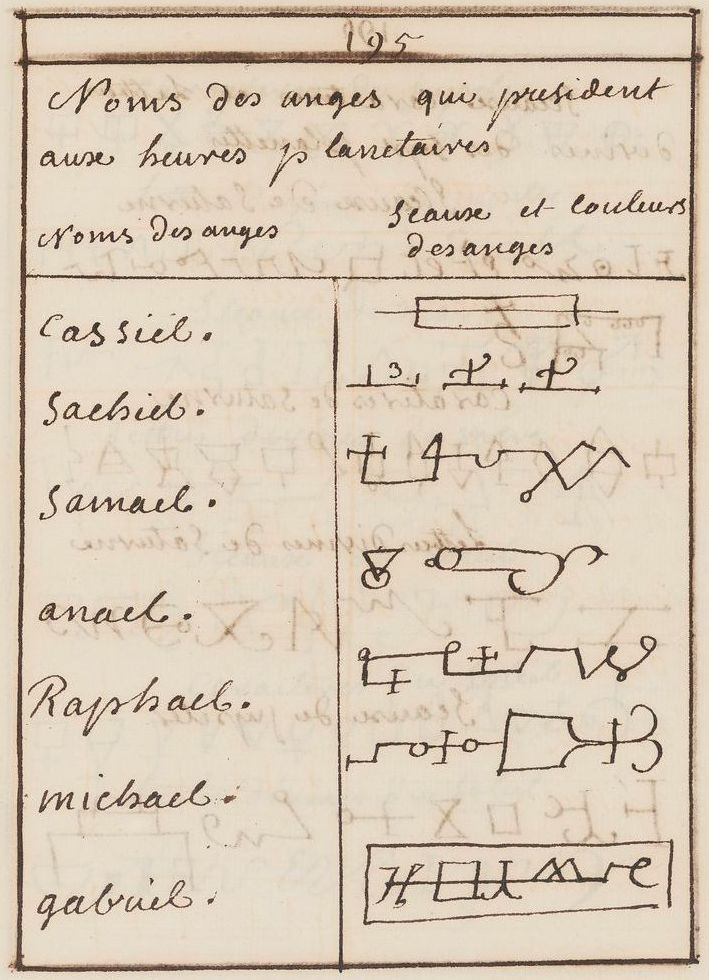 195
Noms des anges qui president
aux heures planetaires
Noms des anges
Seaux et couleurs
des anges
Cassiel.
Sachiel.
Samael.
anael.
Raphael.
michael.
gabriel.